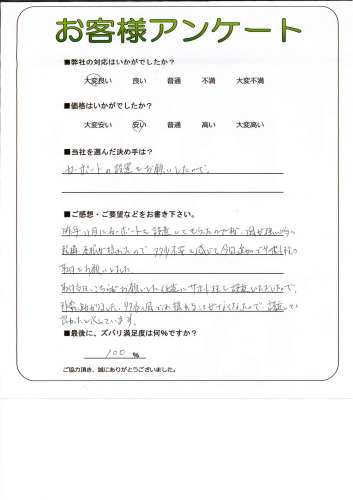 お客様アンケート
■弊社の対応はいかがでしたか？
大変良い 良い 普通 不満 大変不満
■価格はいかがでしたか？
大変安い 安い 普通 高い 大変高い
■当社を選んだ決め手は？
カーポートの設置をお願いしたので。
■ご感想・ご要望などをお書き下さい。
昨年11月にカーポートを設置してもらったのですが、風が強い時に
屋根が揺れたので 不安を感じて今回追加でサポート柱の
取付をお願いしました。
取付当日、こちらがお願いした位置にサポート柱を設置いただけたので、
非常に助かりました。 風で揺れることがなくなったので、設置して
良かったと思っています。
■最後に、ズバリ満足度は何％ですか？
100 %
ご協力頂き、誠にありがとうございました。